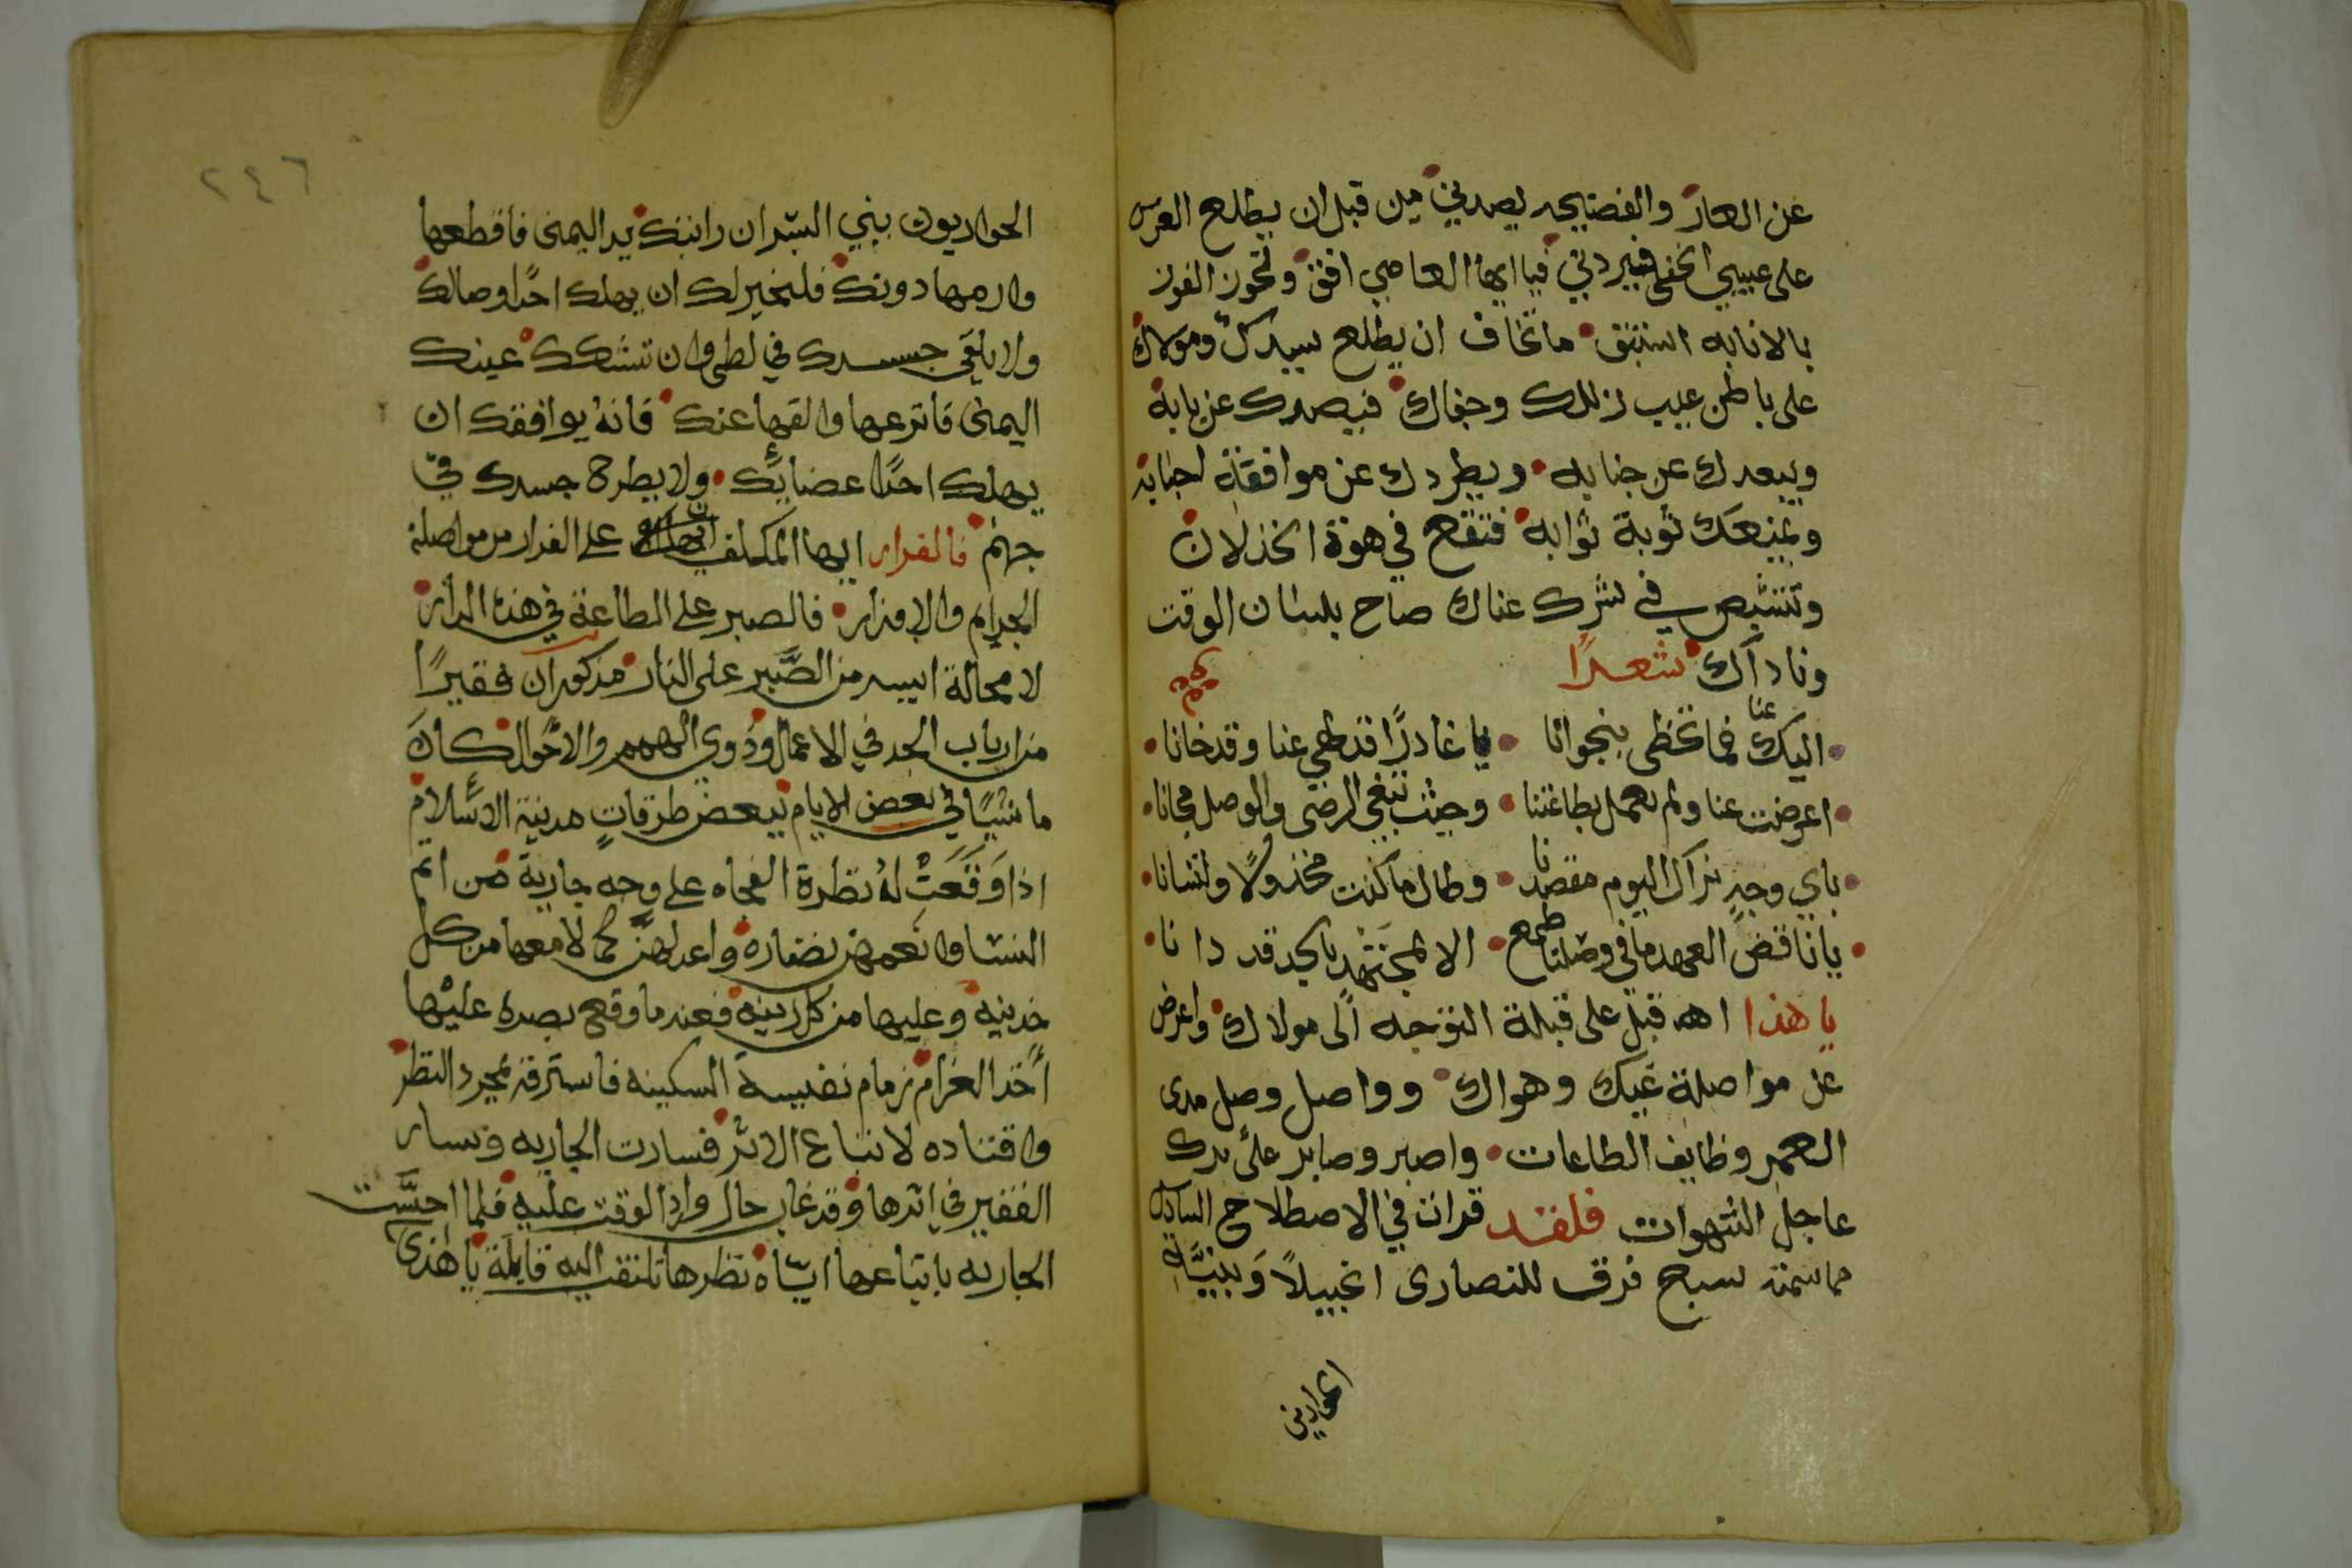 عن العار والفضيحه يصدني من قبل ان يطلع العرس
على عيبي الخفي فيردني فيا ايها العاصي افق وتحوز الفوز
بالانابه استبق ما تخاف ان يطلع سيدك ومولاك
على باطن عيب زللك وجفاك فيصدك عن بابه
ويبعدك عن جنابه ويطردك عن موافقة احبابه
ويمنعك نوبة ثوابه فتقع في هوة الخذلان
في شرك عناك صاح بلسان الوقت
وناداك شعرًا
اليك عنا فما تحظى بنجوانا يا غادرًا قد طغى عنا وقد خانا
اعرضت عنا ولم تعمل بطاعتنا وجئت تبغي الرضى والوصل مجانا
باي وجهٍ نراك اليوم مقصدنا وطال ما كنت مخذولًا وتنسانا
يا ناقض العهد ما في وصلنا طمع الا لمجتهد بالجد قد دانا
يا هذا قبل على قبلة التوجه الى مولاك واعرض
عن مواصلة غيك وهواك وواصل وصل مدى
العمر وظايف الطاعات واصبر وصابر على ترك
عاجل الشهوات فلقد قرات في الاصطلاح
مما سمته سبع فرق للنصارى انجيلًا
الحواريون
٢٤٦
الحواريون بني البشر ان رابتك يد اليمنى فاقطعها
وارمها دونك فلنخير لك ان يهلك احد اوصالك
ولا يلقى جسدك في لظى وان تشكك عينك
اليمنى فانزعها والقها عنك فانه يوافقك ان
يهلك احد اعضايك ولا يطرح جسدك في
جهنم فالفرار ايها المكلف على الفرار من مواصلة
الجرايم والاوزار فالصبر على الطاعة في هذه الدار
لا محالة ايسر من الصبر على النار مذكور ان فقيرًا
من ارباب الجد في الاعمال وذوي الهمم والاحوال كان
ماشيًا في بعض الايام ببعض طرقات مدينة السلام
اذ وقعت له نظرة الفجاه على وجه جارية من اتم
النسا وانعمهن نضاره واعدلهن كمالا معها من كل
خدينه وعليها من كل زينه فعند ما وقع بصره عليها
أخذ الغرام زمام نفسه السكينه فاسترقه بمجرد النظر
واقتاده لاتباع الاثر فسارت الجاريه وسار
الفقير في اثرها وقد غاب حال وارد الوقت عليه فلما احسّت
الجاريه باتباعها اياه نظرها تلتفت اليه قايلة يا هذى